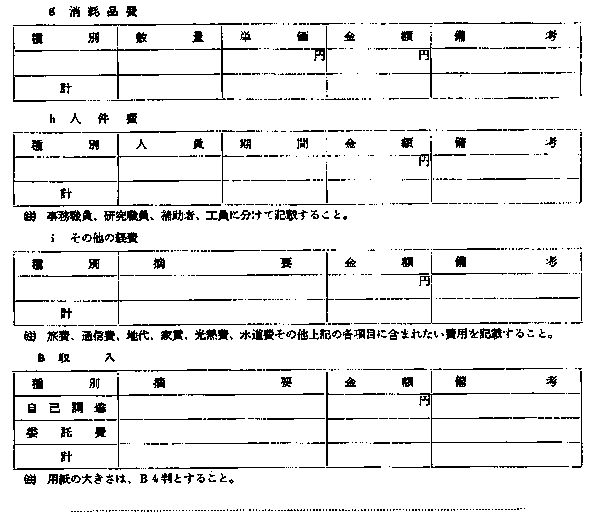 g 消耗品費
種別 数量 単価 金額 備考
円 円
計
h 人件費
種別 人員 期間 金額 備考
円
計
(注) 事務職員、研究職員、補助者、工員に分けて記載すること。
i その他の経費
種別 摘要 金額 備考
円
計
(注) 旅費、通信費、地代、家賃、光熱費、水道費その他上記の各項目に含まれない費用を記載すること。
B 収入
種別 摘要 金額 備考
自己調達 円
委託費
計
(注) 用紙の大きさは、B4判とすること。